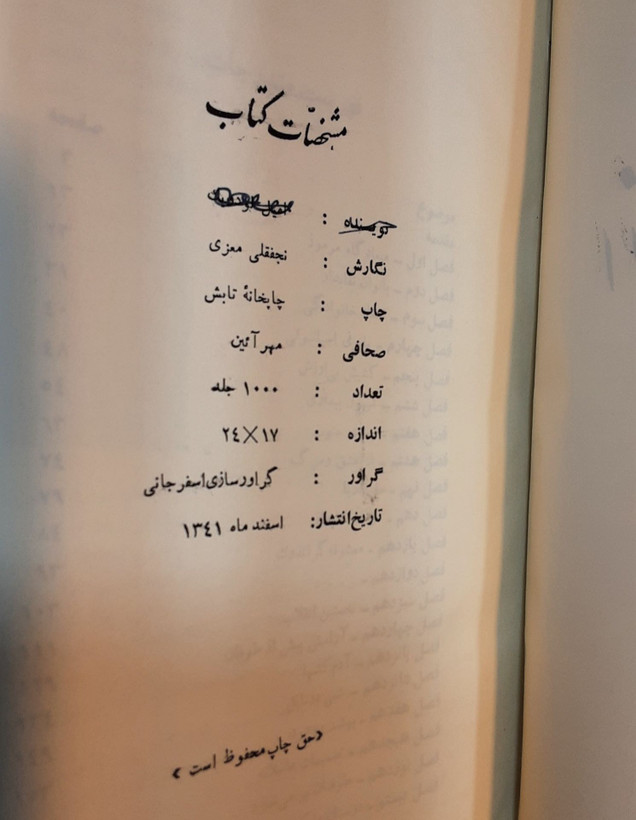 مشخصات کتاب
نویسنده :
نگارش : نجفقلی معزی
چاپ : چاپخانهٔ تابش
صحافی : مهر آئین
تعداد : ۱۰۰۰ جلد
اندازه : ۱۷×۲٤
گراور : گراورسازی اسفرجانی
تاریخ انتشار: اسفند ماه ۱۳٤۱
«حق چاپ محفوظ است»